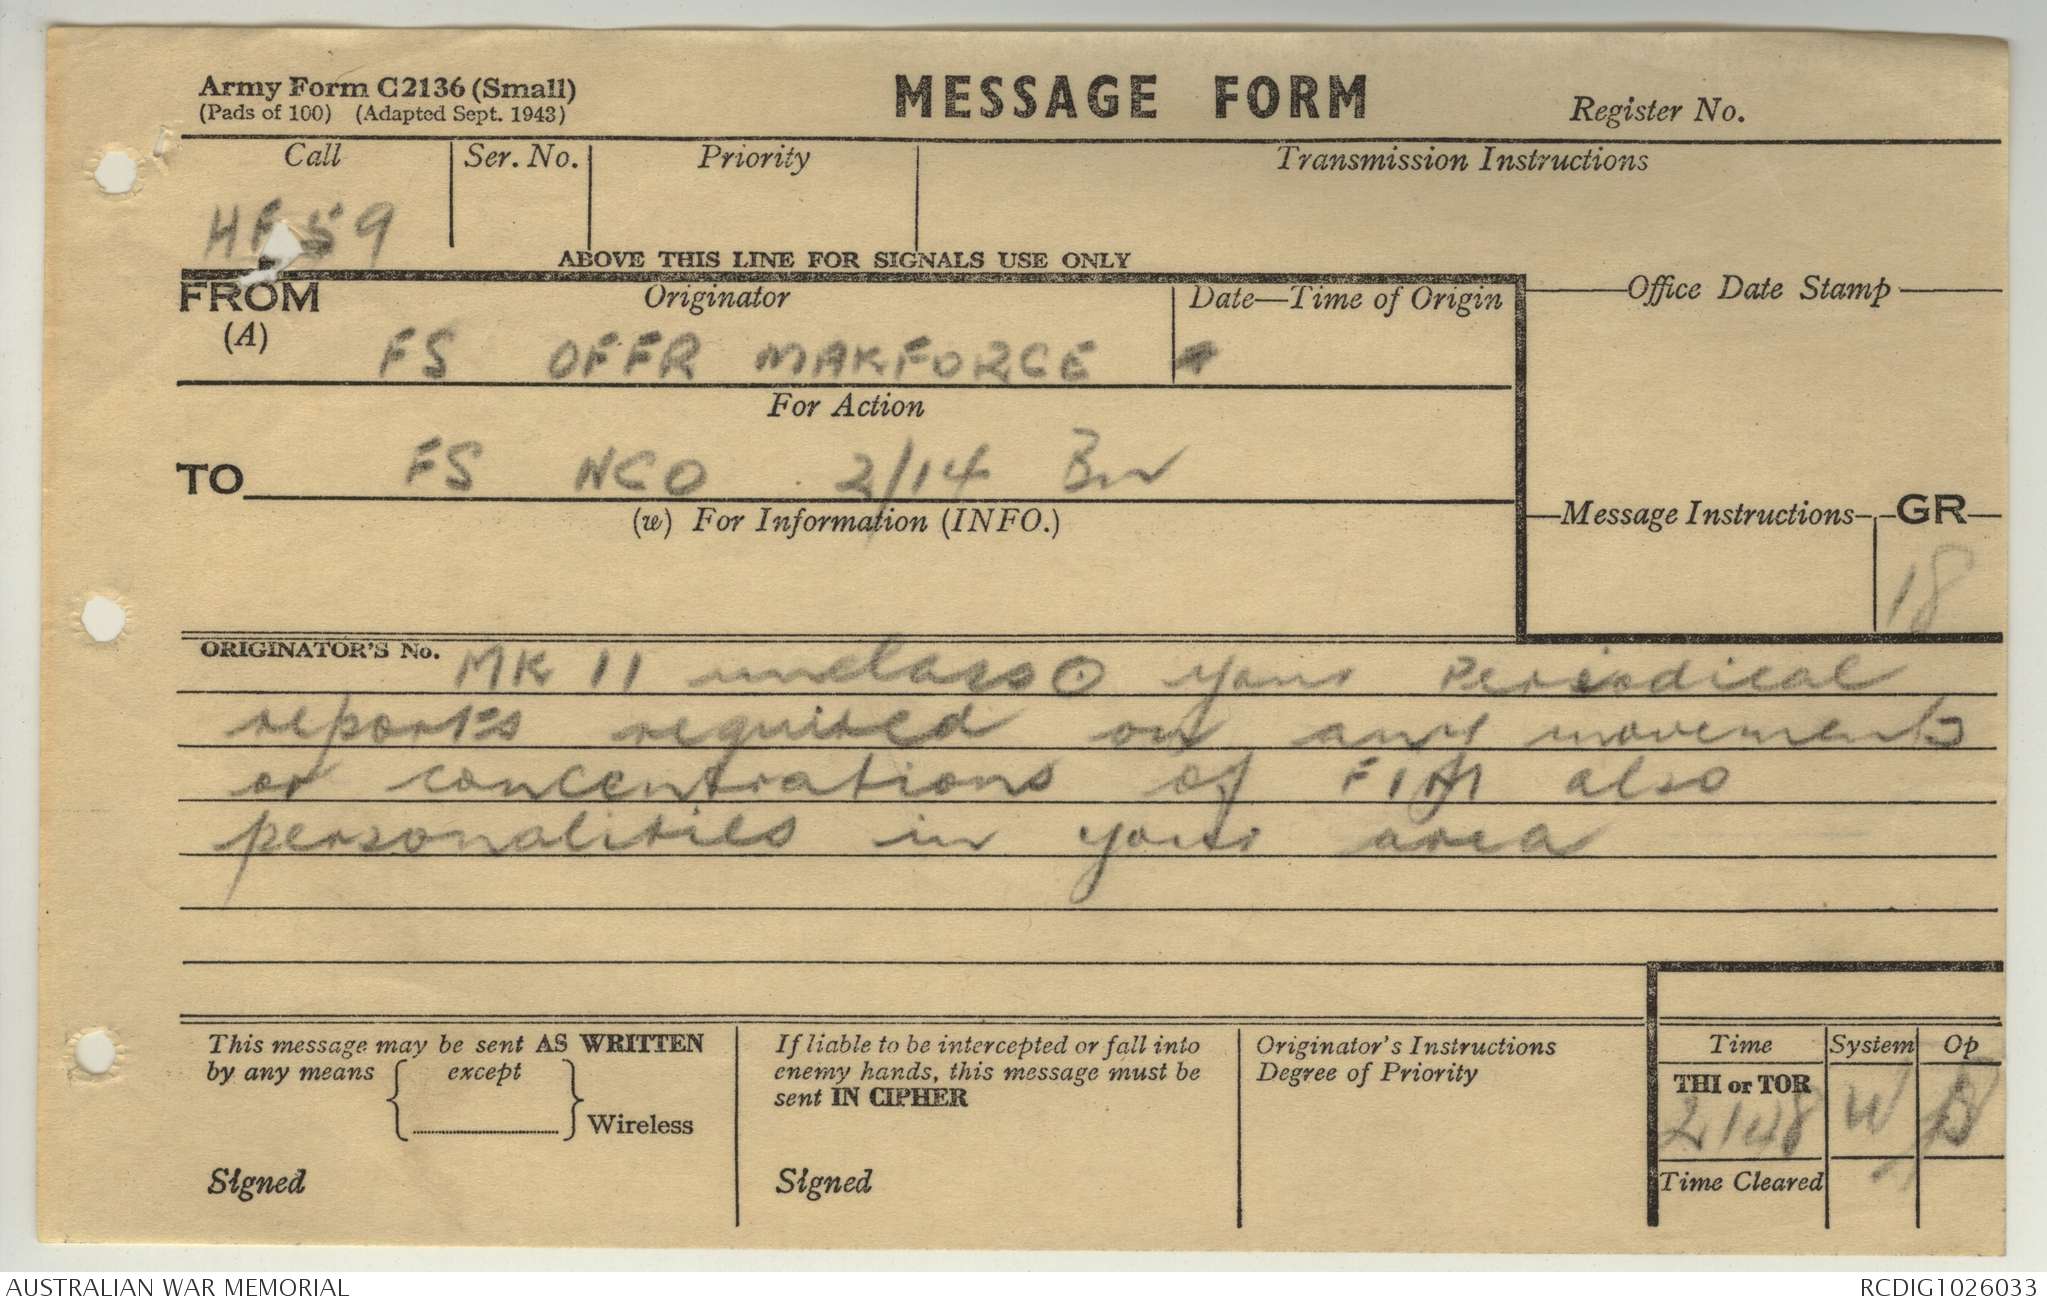 Army Form C2136 (Small)
(Pads of 100) (Adapted Sept. 1943)
MESSAGE FORM
Register No.
Call
Ser. No.
Priority
Transmission Instructions
HF 59
ABOVE THIS LINE FOR SIGNALS USE ONLY
FROM
(A)
Originator
Date—Time of Origin
Office Date Stamp
FS OFFR MAKFORCE
For Action
TO
FS NCO 2/14 Bn
(w) For Information (INFO.)
Message Instructions
GR
18
ORIGINATOR'S No.
MK 11 unclass ⊙ your Periodical
reports required on any movements
or concentrations of also
personalities in your area
This message may be sent AS WRITTEN
by any means { except }
Wireless
Signed
If liable to be intercepted or fall into
enemy hands, this message must be
sent IN CIPHER
Signed
Originator's Instructions
Degree of Priority
Time
System
Op
THI or TOR
W
Time Cleared
AUSTRALIAN WAR MEMORIAL
RCDIG1026033